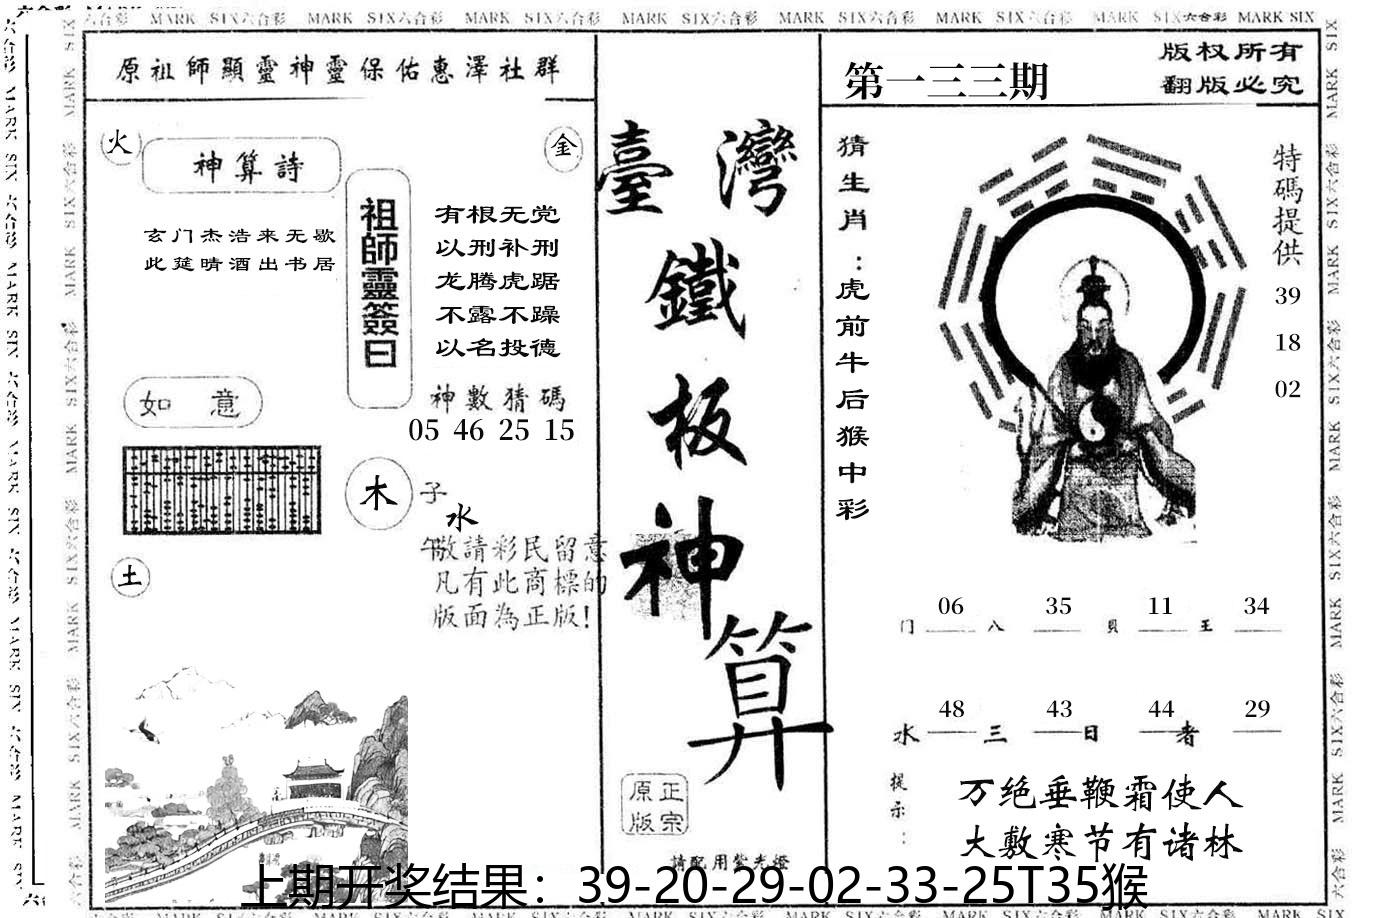 MARK SIX六合彩 MARK SIX六合彩 MARK SIX六合彩 MARK SIX六合彩 MARK SIX六合彩 MARK SIX六合彩 MARK SIX六合彩 MARK SIX
原祖師顯靈神靈保佑惠澤社群
火
金
神算詩
玄门杰浩来无歇
此筵晴酒出书居
祖師靈簽曰
有根无党
以刑补刑
龙腾虎踞
不露不躁
以名投德
神數猜碼
05 46 25 15
如意
木
子
水
午
土
敬請彩民留意
凡有此商標的
版面為正版!
臺灣
鐵
板
神
算
正宗
原版
請配用紫光燈
第一三三期
版权所有
翻版必究
猜生肖:虎前牛后猴中彩
特碼提供
39
18
02
06 35 11 34
门 八 貝 王
48 43 44 29
水 三 日 者
提示:
万绝垂鞭霜使人
大敷寒节有诸林
上期开奖结果：39-20-29-02-33-25T35猴